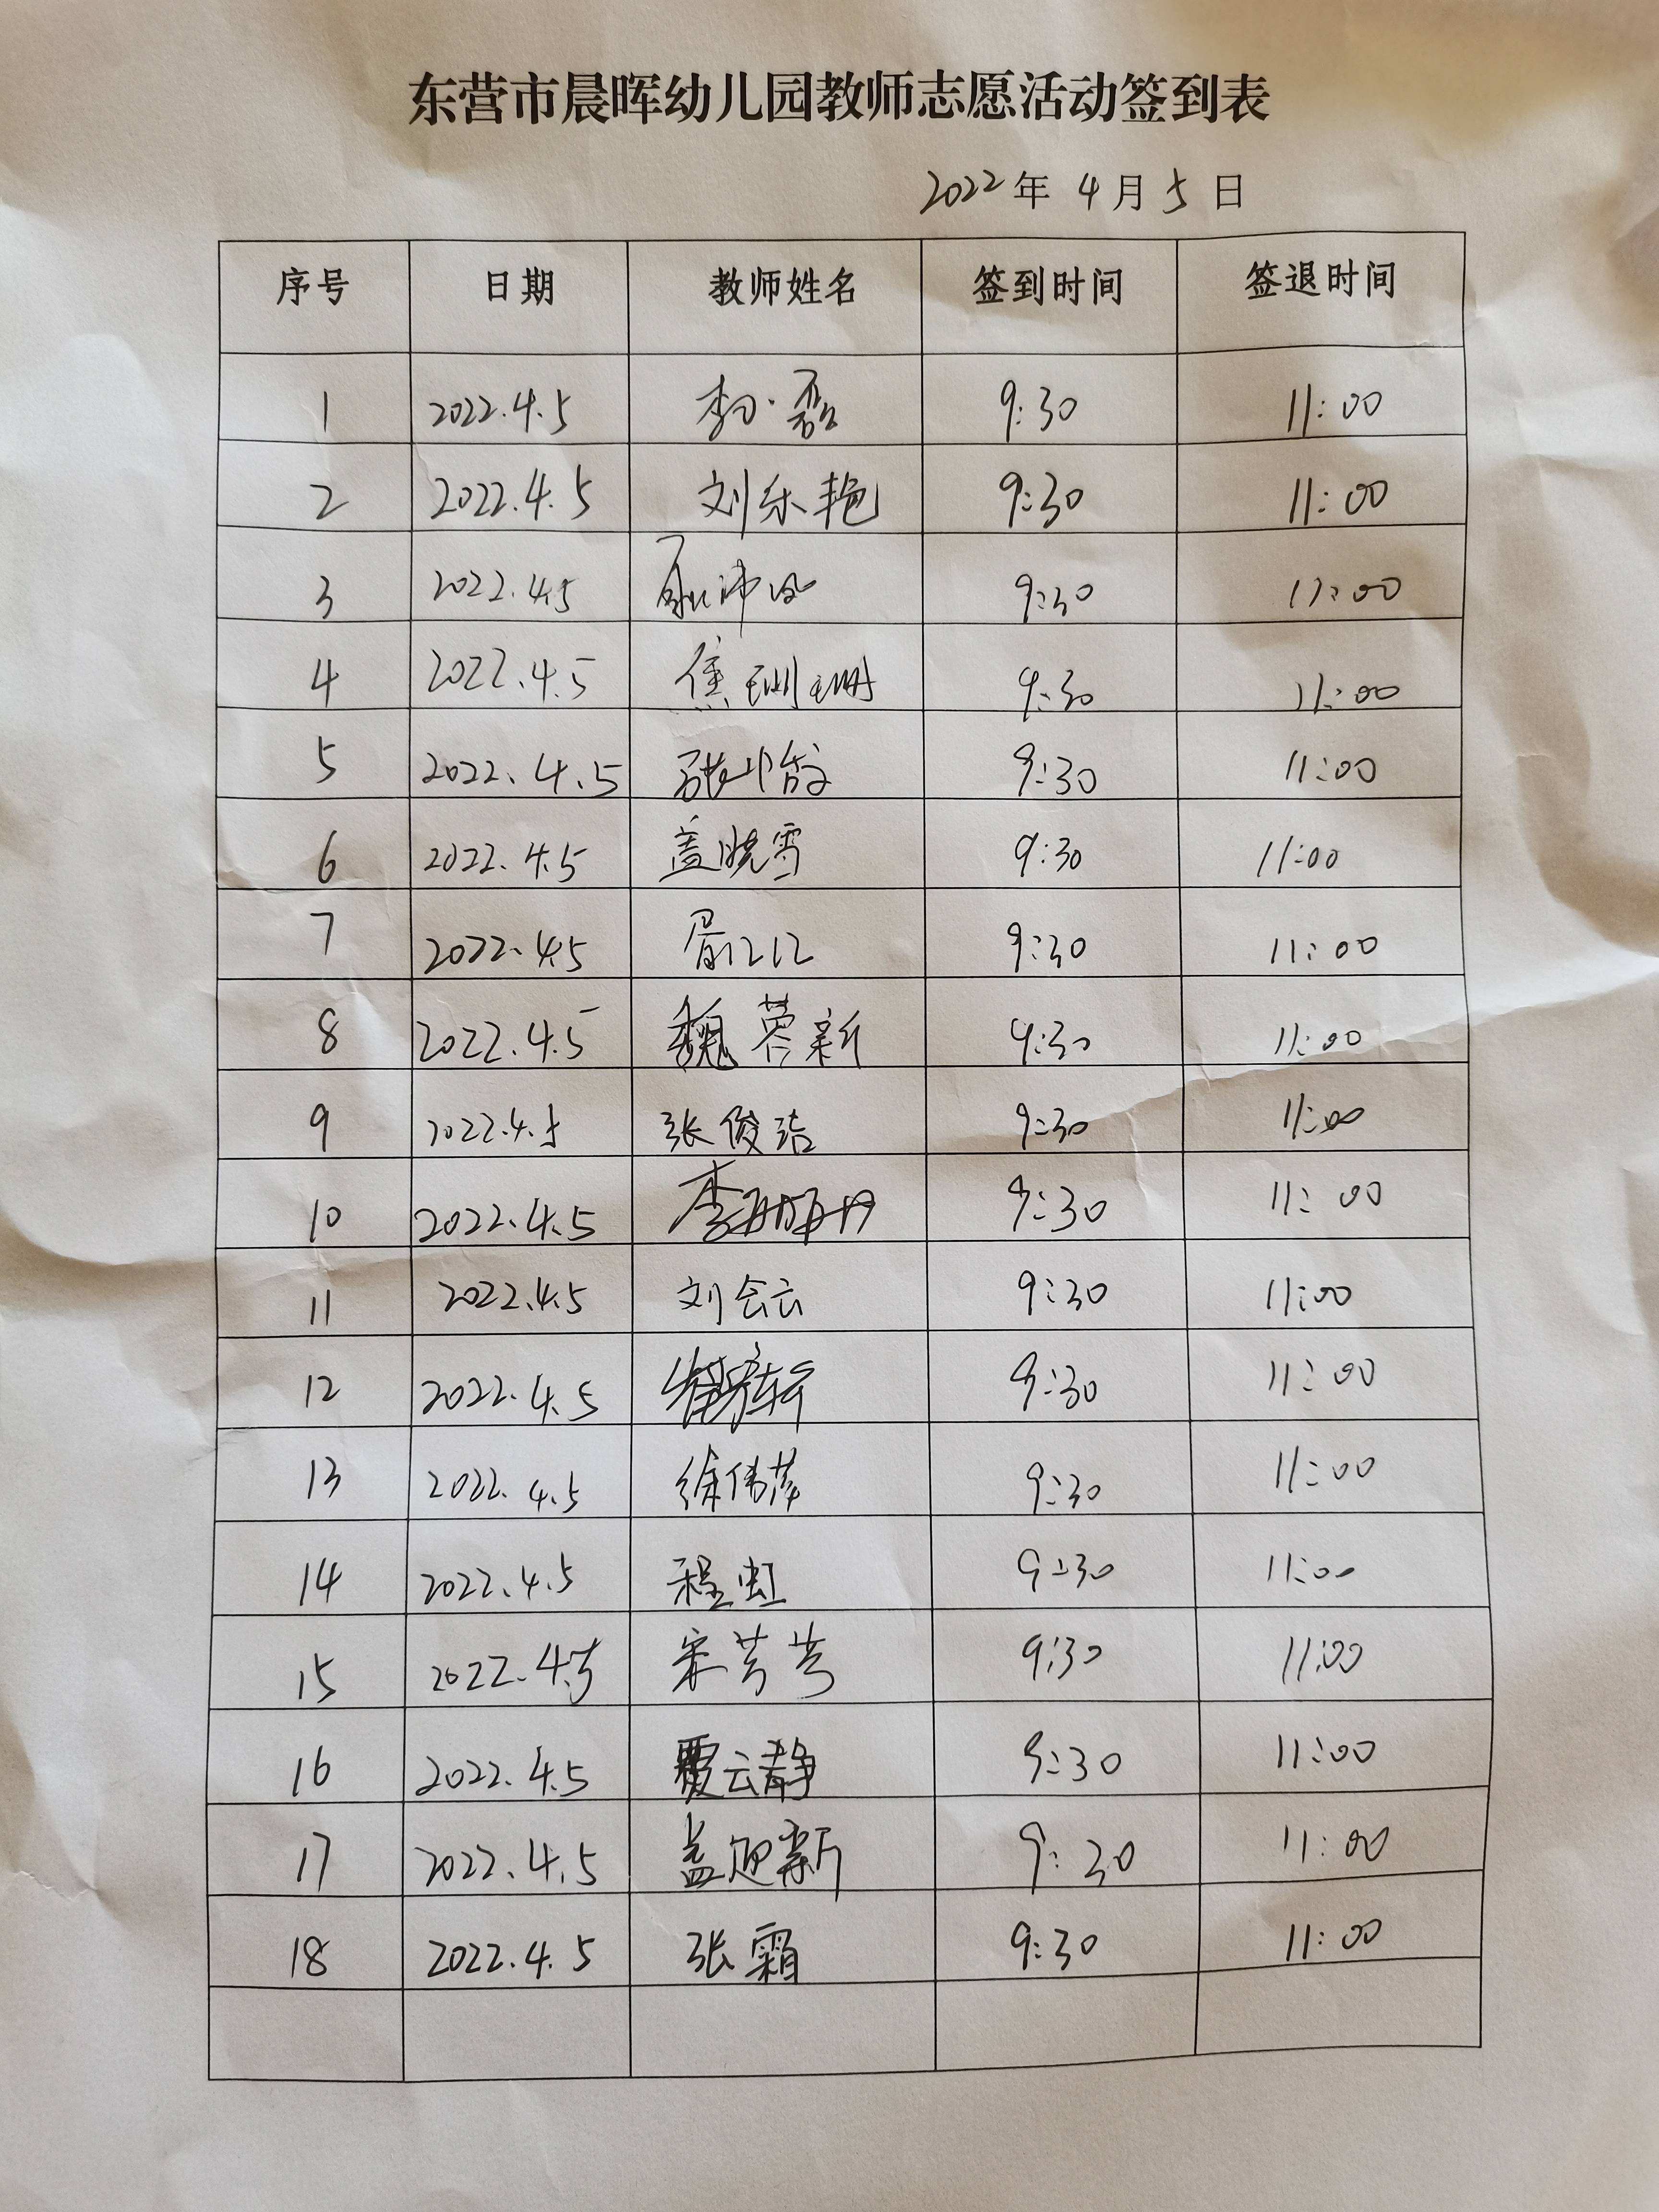 东营市晨晖幼儿园教师志愿活动签到表
2022年 4月 5日
序号 日期 教师姓名 签到时间 签退时间
1 2022.4.5 9:30 11:00
2 2022.4.5 刘乐艳 9:30 11:00
3 2022.4.5 9:30 11:00
4 2022.4.5 焦珊珊 9:30 11:00
5 2022.4.5 9:30 11:00
6 2022.4.5 盖晓雪 9:30 11:00
7 2022.4.5 9:30 11:00
8 2022.4.5 魏蓉新 9:30 11:00
9 2022.4.5 张俊洁 9:30 11:00
10 2022.4.5 9:30 11:00
11 2022.4.5 刘会云 9:30 11:00
12 2022.4.5 9:30 11:00
13 2022.4.5 徐伟萍 9:30 11:00
14 2022.4.5 程虹 9:30 11:00
15 2022.4.5 宋芳芳 9:30 11:00
16 2022.4.5 云静 9:30 11:00
17 2022.4.5 盖迎新 9:30 11:00
18 2022.4.5 张霜 9:30 11:00